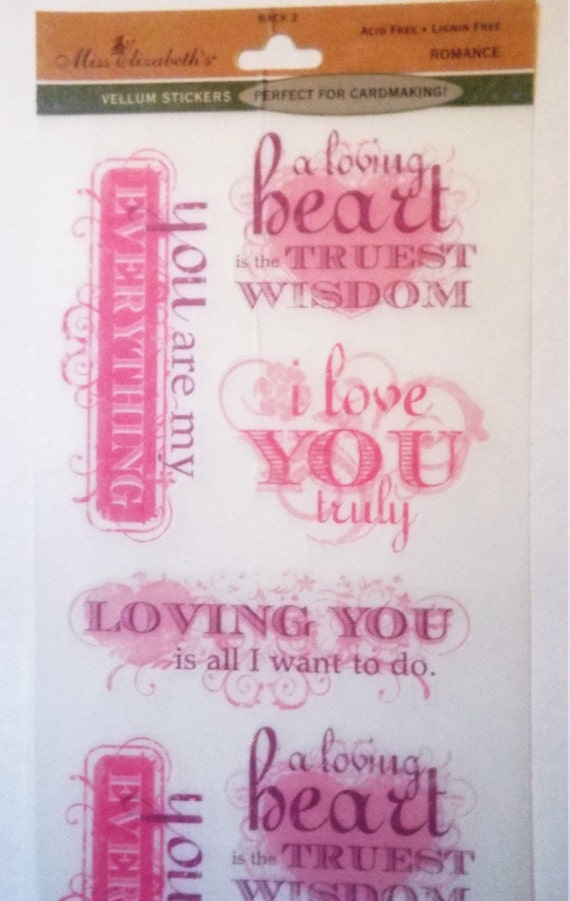 RACK 2
ACID FREE • LIGNIN FREE
Miss Elizabeth's
ROMANCE
VELLUM STICKERS
PERFECT FOR CARDMAKING!
you are my
EVERYTHING
a loving
heart
is the TRUEST
WISDOM
i love
YOU
truly
LOVING YOU
is all I want to do.
you
EVER
a loving
heart
is the TRUEST
WISDOM